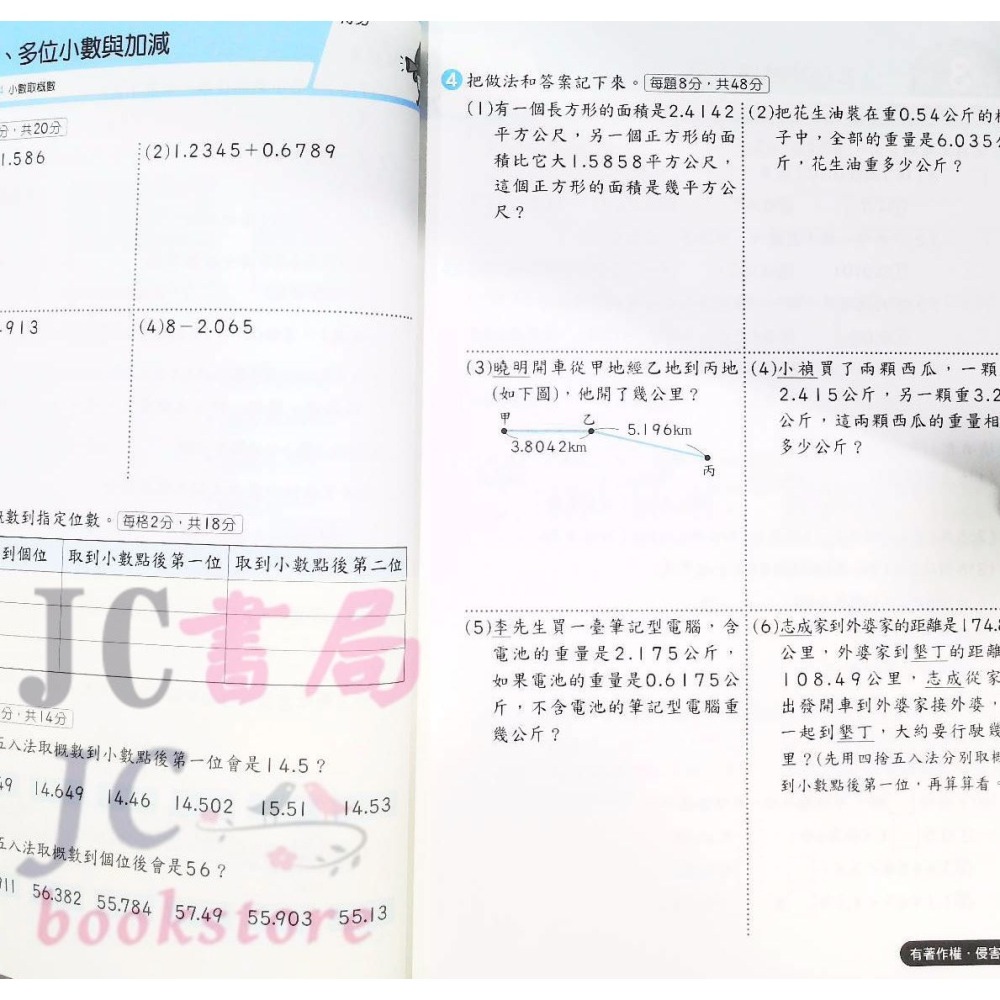 、多位小數與加減
小數取概數
分，共20分
1.586
(2)1.2345＋0.6789
.913
(4)8－2.065
概數到指定位數。 每格2分，共18分
到個位 取到小數點後第一位 取到小數點後第二位
JC書局
分，共14分
五入法取概數到小數點後第一位會是14.5？
49 14.649 14.46 14.502 15.51 14.53
JC
五入法取概數到個位後會是56？
911 56.382 55.784 57.49 55.903 55.13
bookstore
4 把做法和答案記下來。 每題8分，共48分
(1)有一個長方形的面積是2.4142
平方公尺，另一個正方形的面
積比它大1.5858平方公尺，
這個正方形的面積是幾平方公
尺？
(2)把花生油裝在重0.54公斤的
子中，全部的重量是6.035
斤，花生油重多少公斤？
(3)曉明開車從甲地經乙地到丙地
(如下圖)，他開了幾公里？
甲 乙 5.196km
3.8042km
丙
(4)小禎買了兩顆西瓜，一顆
2.415公斤，另一顆重3.2
公斤，這兩顆西瓜的重量相
多少公斤？
(5)李先生買一臺筆記型電腦，含
電池的重量是2.175公斤，
如果電池的重量是0.6175公
斤，不含電池的筆記型電腦重
幾公斤？
(6)志成家到外婆家的距離是174.8
公里，外婆家到墾丁的距離
108.49公里，志成從家
出發開車到外婆家接外婆，
一起到墾丁，大約要行駛幾
里？(先用四捨五入法分別取概
到小數點後第一位，再算算看。
有著作權‧侵害